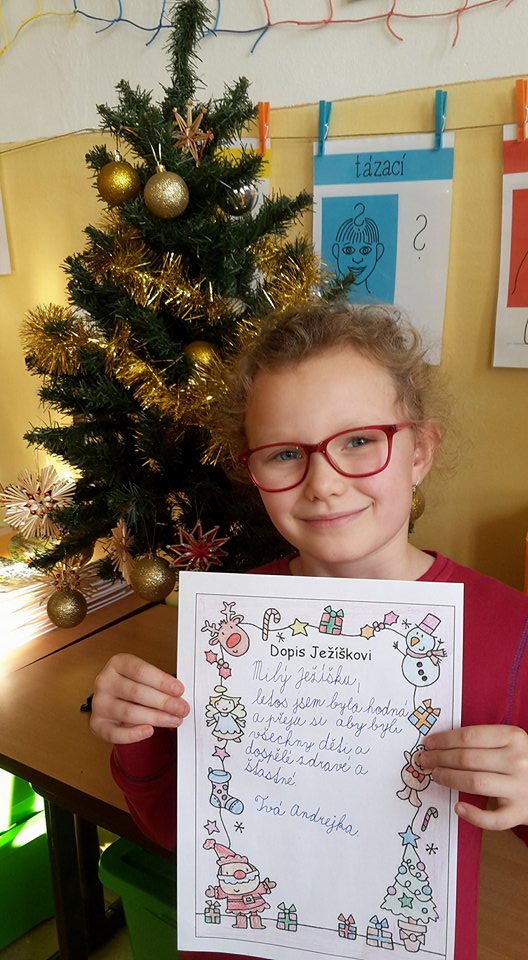 tázací
?
Dopis Ježíškovi
Milý Ježíšku,
letos jsem byla hodná
a přeju si aby byli
všechny děti a
dospělé zdravé a
šťastné
Tvá Andrejka.